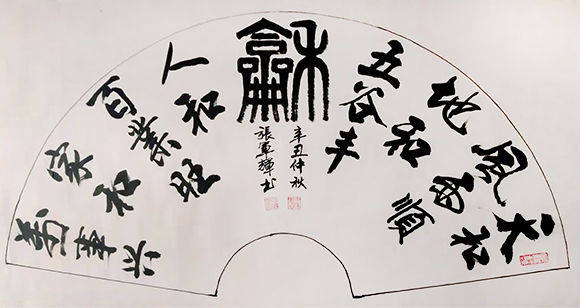 天和
風雨順
地和
五谷丰
龢
辛丑仲秋
張軍輝书
人和
百業旺
家和
萬事兴